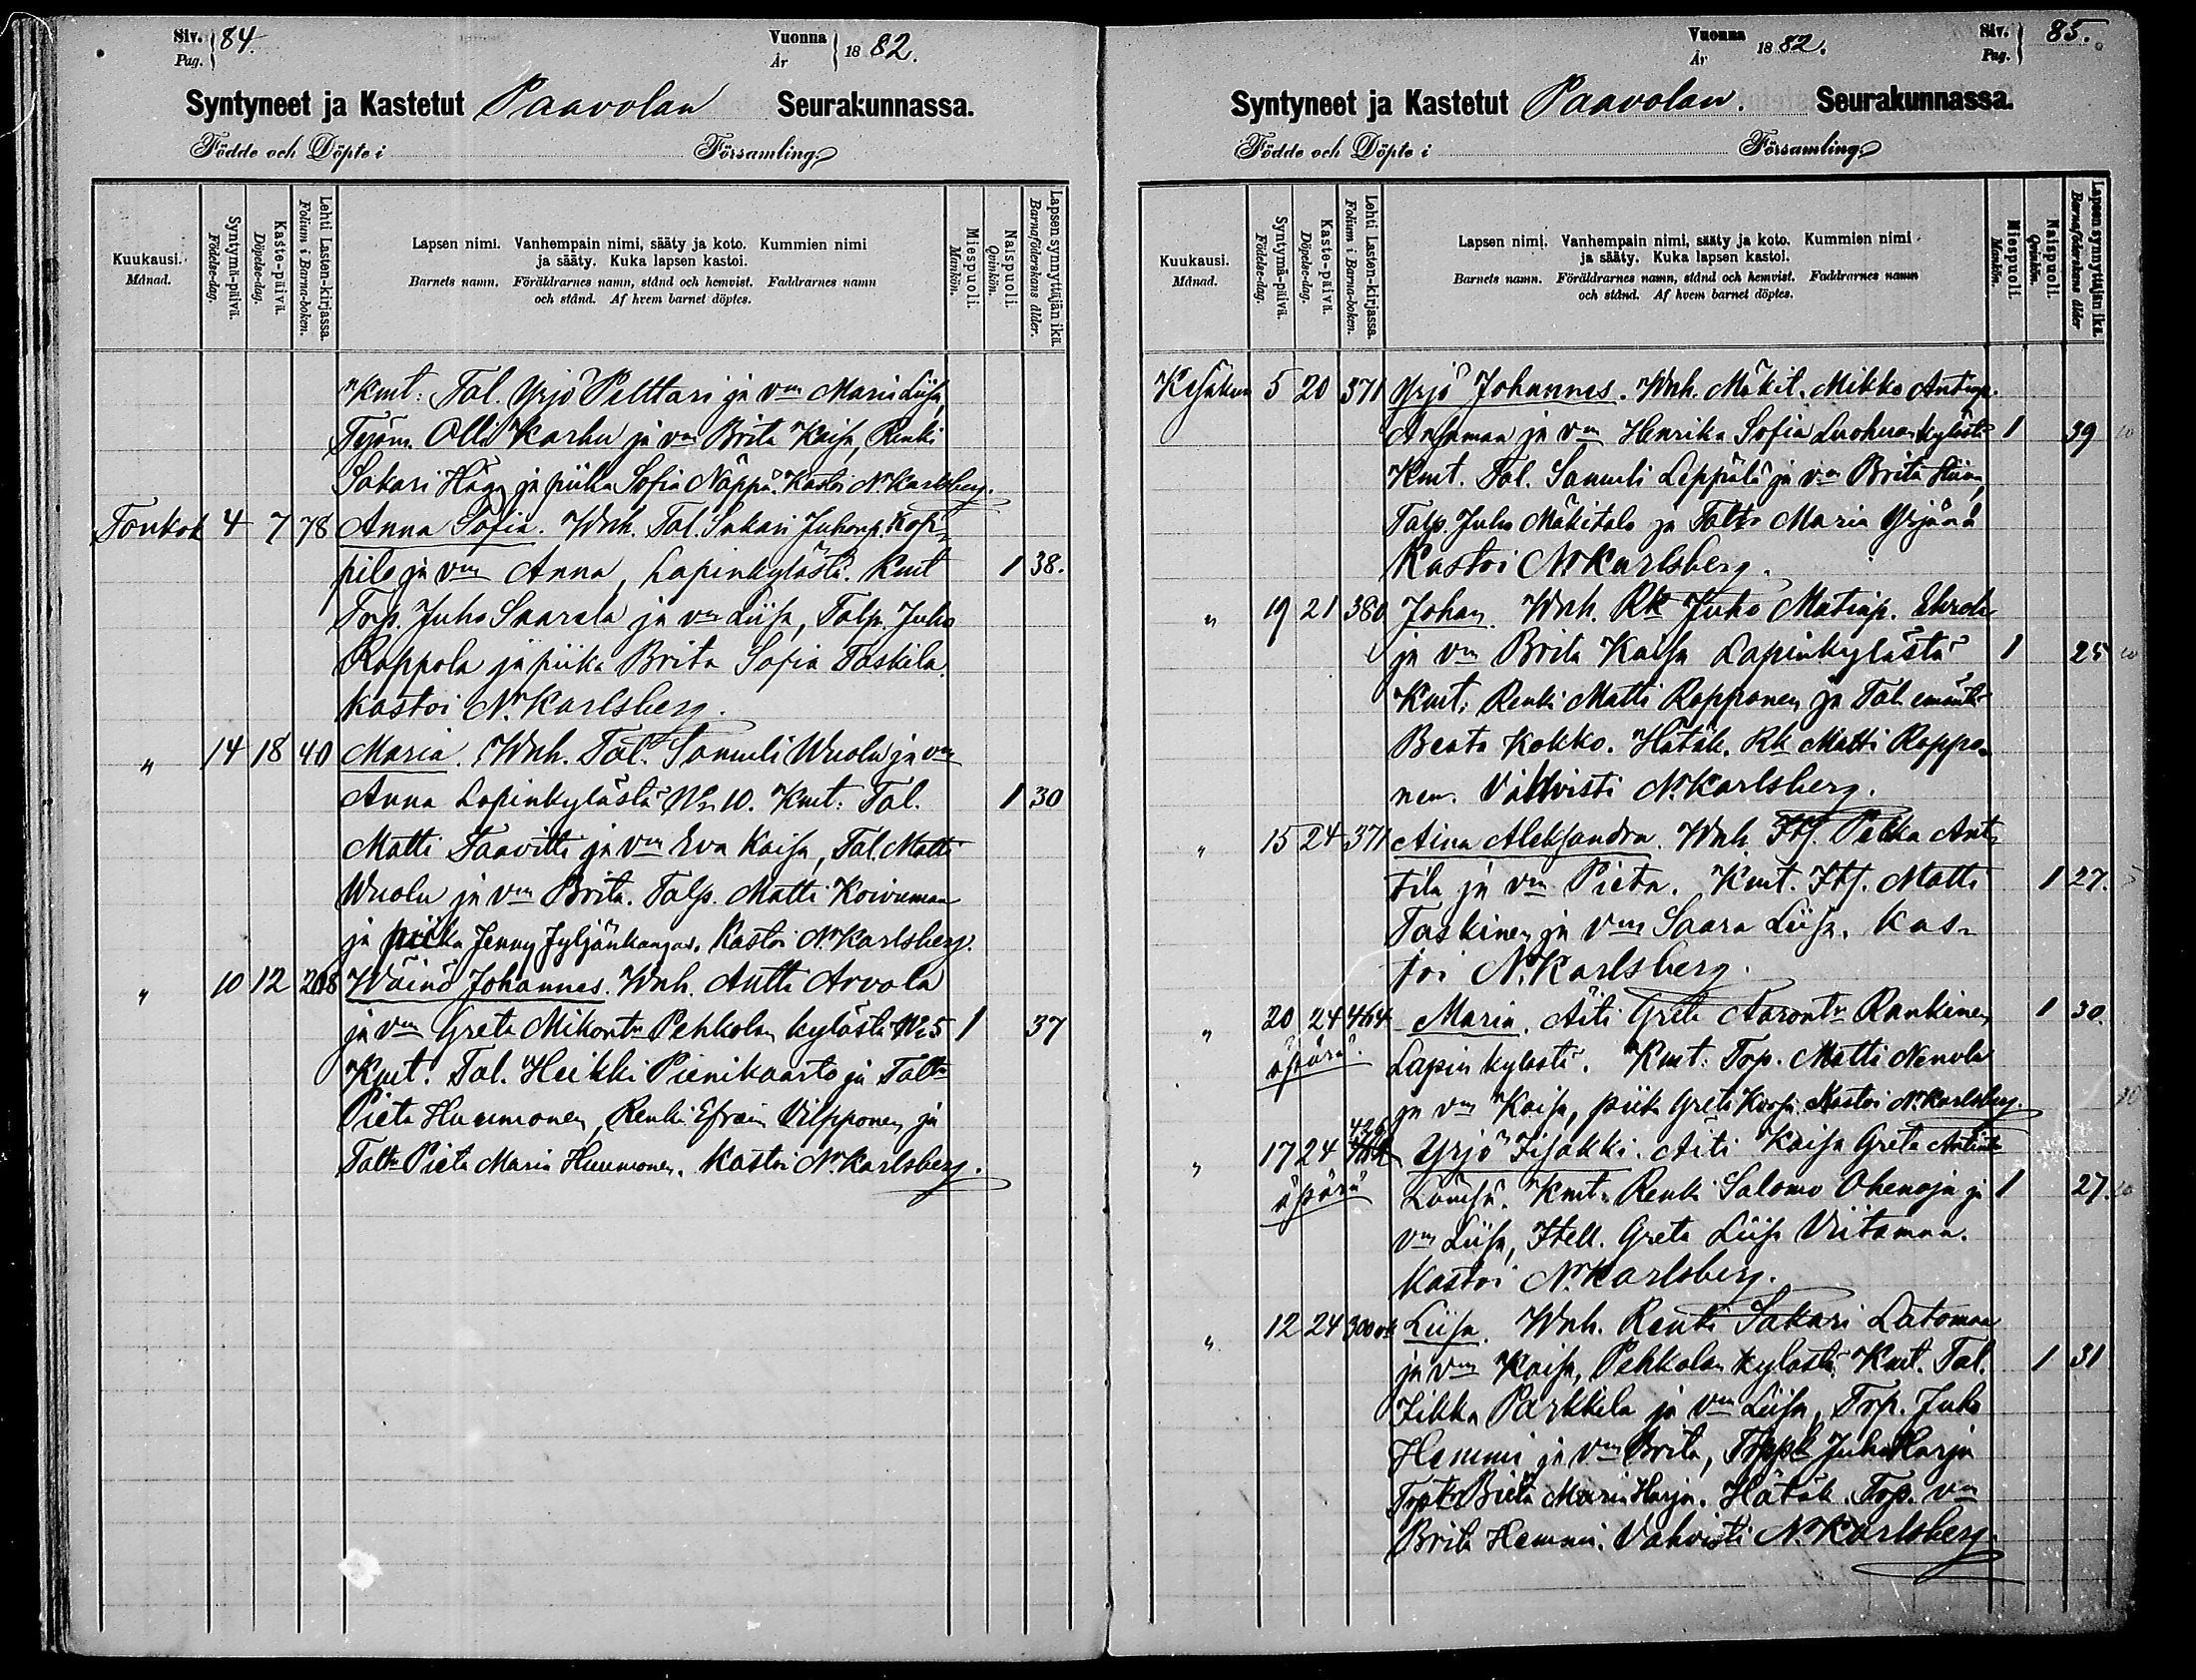 Siv. 84. Vuonna 1882.
Pag. År
Syntyneet ja Kastetut Paavolan Seurakunnassa.
Födde och Döpte i Församling
Kuukausi. Månad.
Syntymä-päivä. Födelse-dag.
Kaste-päivä. Döpelse-dag.
Lehti Lasten-kirjassa. Folium i Barna-boken.
Lapsen nimi. Vanhempain nimi, sääty ja koto. Kummien nimi
ja sääty. Kuka lapsen kastoi.
Barnets namn. Föräldrarnes namn, stånd och hemvist. Faddrarnes namn
och stånd. Af hvem barnet döptes.
Miespuoli. Mankön.
Naispuoli. Qvinkön.
Lapsen synnyttäjän ikä. Barnaföderskans ålder.
Kmt: Tal. Yrjö Pelttari ja vm Maria Liisa,
Olli Karhu ja vm Brita Kaisa, Renki
Sakari Häg ja piika Sofia Näppä. Kastoi N. Karlsberg.
Toukok 4 7 78 Anna Sofia. Wnh. Tal. Sakari Juhonp. Kop-
pilo ja vm Anna, Lapinkylästä. Kmt 1 38.
Trp. Juho Saarela ja vm Liisa, Talp. Juho
Roppola ja piika Brita Sofia Taskila.
Kastoi N. Karlsberg.
" 14 18 40 Maria. Wnh. Tal. Samuli Wuolu ja vm
Anna Lapinkylästä No 10. Kmt: Tal. 1 30
Matti Taavitti ja vm Eva Kaisa, Tal. Matti
Wuolu ja vm Brita. Talp. Matti Koivumaa
ja piika Jenny Jyljänkangas. Kastoi N. Karlsberg.
" 10 12 208 Wäinö Johannes. Wnh. Antti Arvola
ja vm Greta Mikontr Pehkolan kylästä No 5 1 37
Kmt. Tal. Heikki Pienikaarto ja Taltr
Pieta Huumonen, Renki Efraim Vilpponen ja
Taltr Pieta Maria Huumonen. Kastoi N. Karlsberg.
Vuonna 1882. Siv. 85.
År Pag.
Syntyneet ja Kastetut Paavolan. Seurakunnassa.
Födde och Döpte i Församling
Kuukausi. Månad.
Syntymä-päivä. Födelse-dag.
Kaste-päivä. Döpelse-dag.
Lehti Lasten-kirjassa. Folium i Barna-boken.
Lapsen nimi. Vanhempain nimi, sääty ja koto. Kummien nimi
ja sääty. Kuka lapsen kastoi.
Barnets namn. Föräldrarnes namn, stånd och hemvist. Faddrarnes namn
och stånd. Af hvem barnet döptes.
Miespuoli. Mankön.
Naispuoli. Qvinkön.
Lapsen synnyttäjän ikä. Barnaföderskans ålder
Kesäkuu 5 20 371 Yrjö Johannes. Wnh. Mäkit. Mikko Antinp.
Ahsamaa ja vm Henrika Sofia Luohuankylästä 1 39 10
Kmt. Tal. Samuli Leppälä ja vm Brita
Talp. Juho Mäkitalo ja Taltr Maria Yrjänä
Kastoi N. Karlsberg.
" 19 21 380 Johan. Wnh. Rk Juho Matinp.
ja vm Brita Kaisa Lapinkylästä 1 25 10
Kmt: Renki Matti Rapponen ja Tal. emäntä
Beata Kokko. Hätäk. Rk Matti Roppo-
nen. Vahvisti N. Karlsberg.
" 15 24 371 Aina Aleksandra. Wnh. Its. Pekka Ant-
tila ja vm Pieta. Kmt. Its. Matti 1 27. 5
Taskinen ja vm Saara Liisa. Kas-
toi N. Karlsberg.
" 20 24 464 Maria. Äiti Greta Aarontr Rankinen 1 30.
äpärä. Lapin kylästä. Kmt: Trp. Matti Nenola
ja vm Kaisa, piika Greta Korpi. Kastoi N. Karlsberg.
" 17 24 426 Yrjö Iisakki. Äiti Kaisa Greta Antintr
äpärä Kmt: Renki Salomo Ohenoja ja 1 27. 10
vm Liisa, Itell. Greta Liisa Viitamaa.
Kastoi N. Karlsberg.
" 12 24 300 Liisa. Wnh. Renki Sakari Latomaa
ja vm Kaisa, Pehkolan kylästä. Kmt. Tal. 1 31
Iikka Parkkila ja vm Liisa, Trp. Juho
Hemmi ja vm Brita, Juho Harju
Brita Maria Harju. Hätäk. Trp. vm
Brita Hemmi. Vahvisti N. Karlsberg